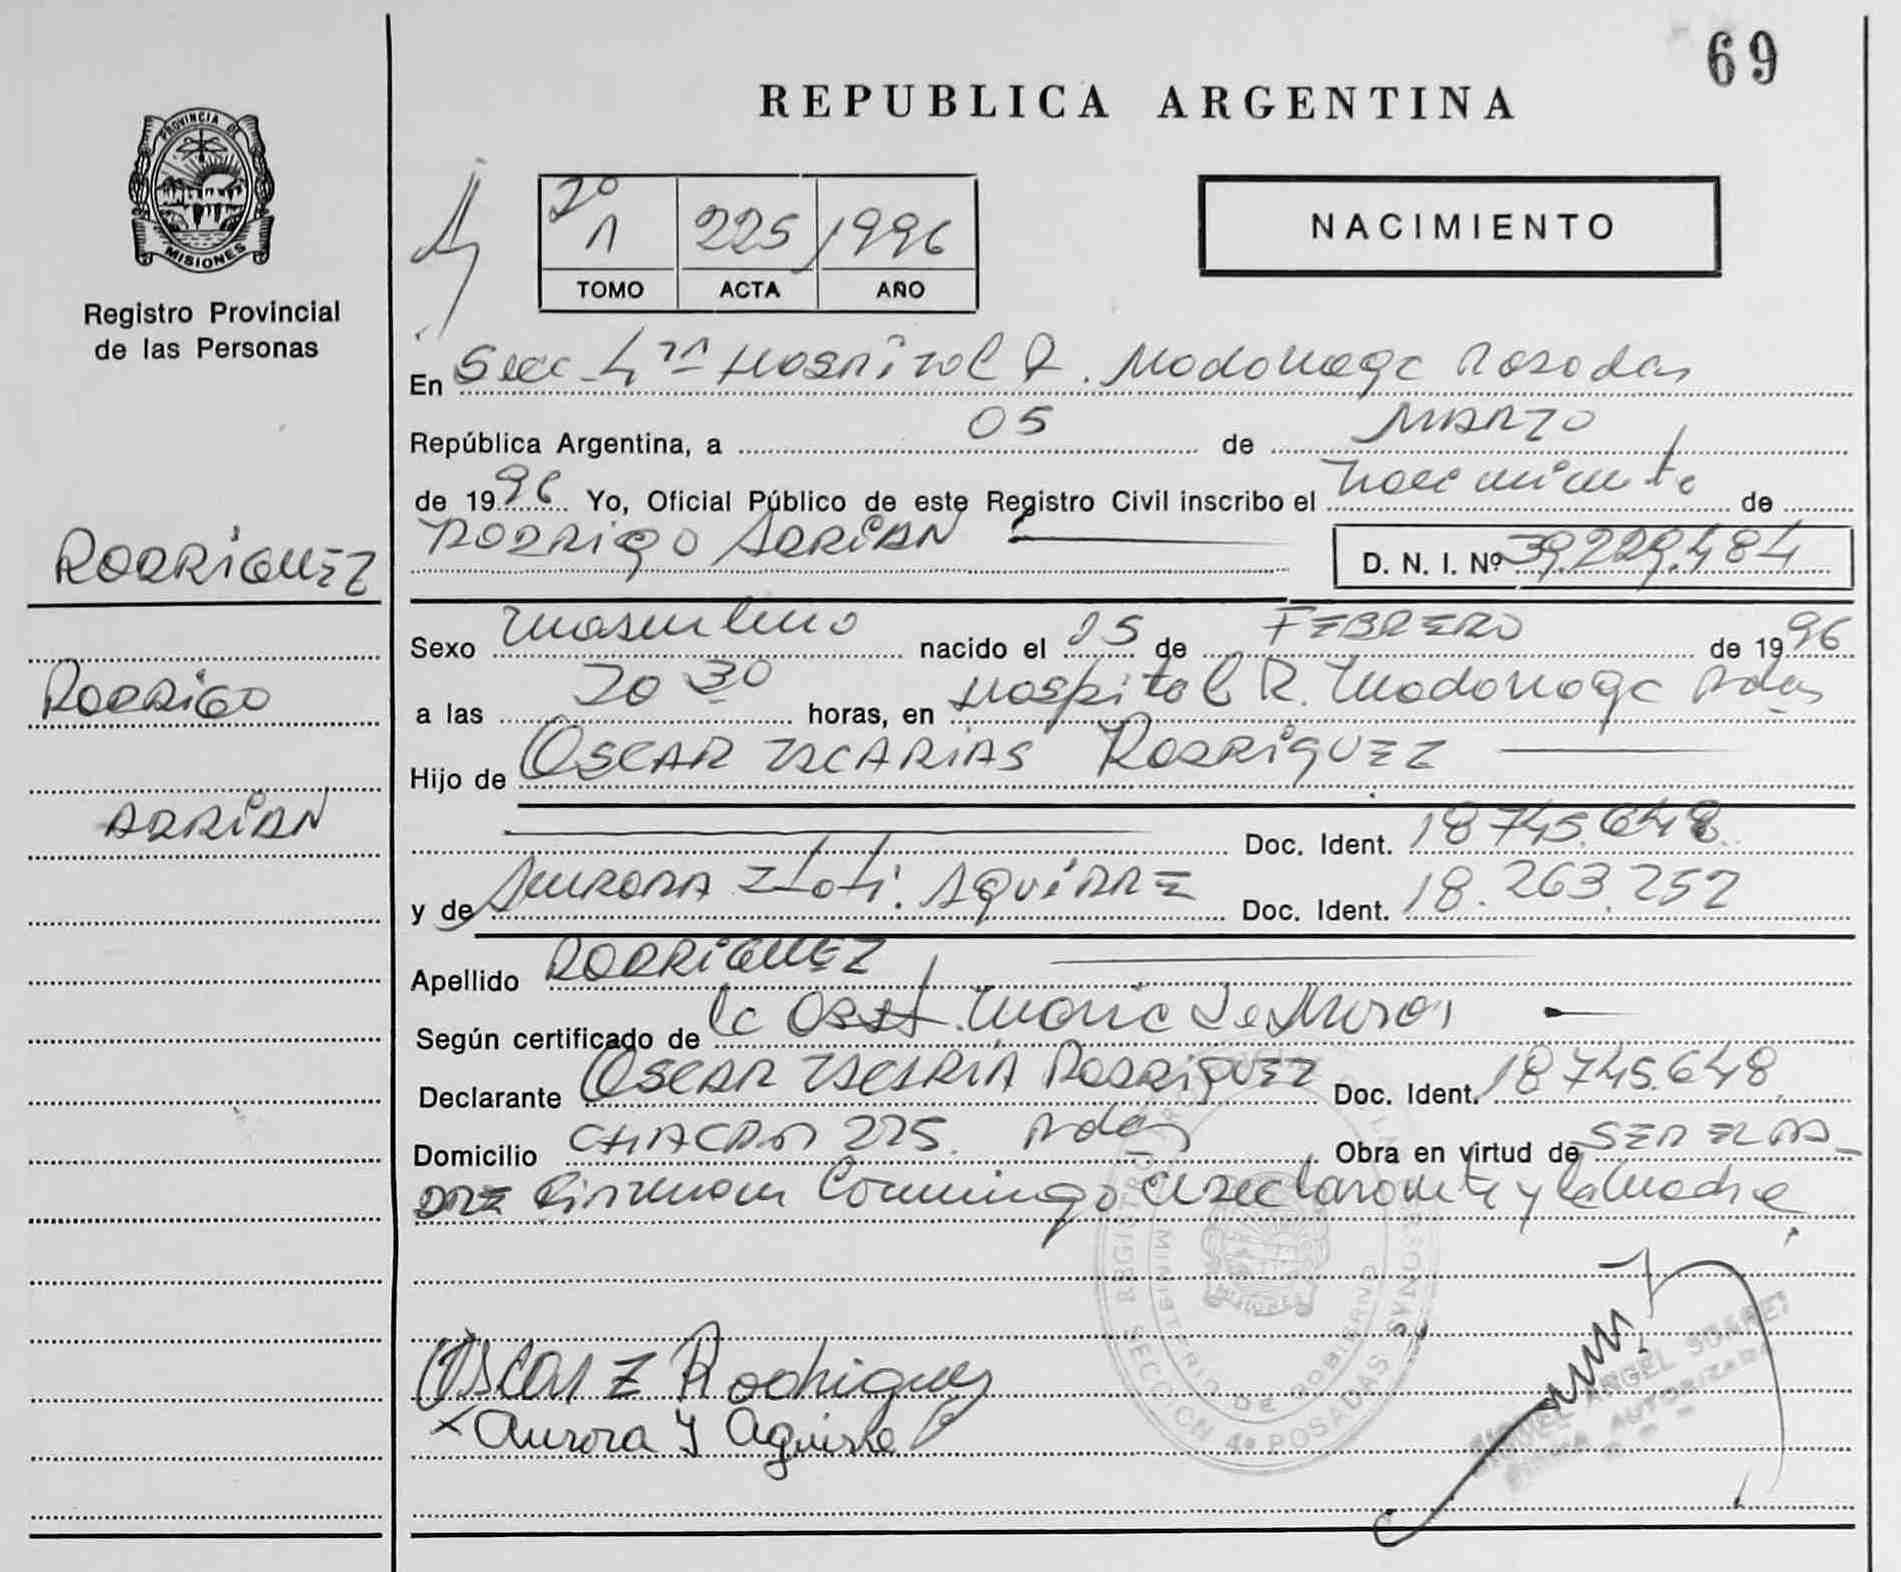 69
REPUBLICA ARGENTINA
PROVINCIA DE
MISIONES
Registro Provincial
de las Personas
2º
1 225 1996
TOMO ACTA AÑO
NACIMIENTO
En Secc 4ta Hospital R. Madariaga Posadas
República Argentina, a 05 de MARZO
de 1996 Yo, Oficial Público de este Registro Civil inscribo el nacimiento de
RODRIGO ADRIÁN
D. N. I. Nº 39.229.484
RODRIGUEZ
RODRIGO
ADRIÁN
Sexo masculino nacido el 05 de FEBRERO de 1996
a las 20 30 horas, en Hospital R. Madariaga Pdas
Hijo de OSCAR RODRIGUEZ
Doc. Ident. 18745.648
y de AURORA AGUIRRE Doc. Ident. 18.263.252
Apellido RODRIGUEZ
Según certificado de la Obst. Maria
Declarante OSCAR RODRIGUEZ Doc. Ident. 18745.648
Domicilio CHACRA 225. Pdas Obra en virtud de SER EL PA-
DRE Firman Conmigo el declarante y la Madre
Oscar Z Rodriguez
x Aurora Y Aguirre
REGISTRO
PERSONAS
MINISTERIO DE GOBIERNO
MISIONES
SECCION 4ª POSADAS
MIGUEL ANGEL SUAREZ
FIRMA AUTORIZADA